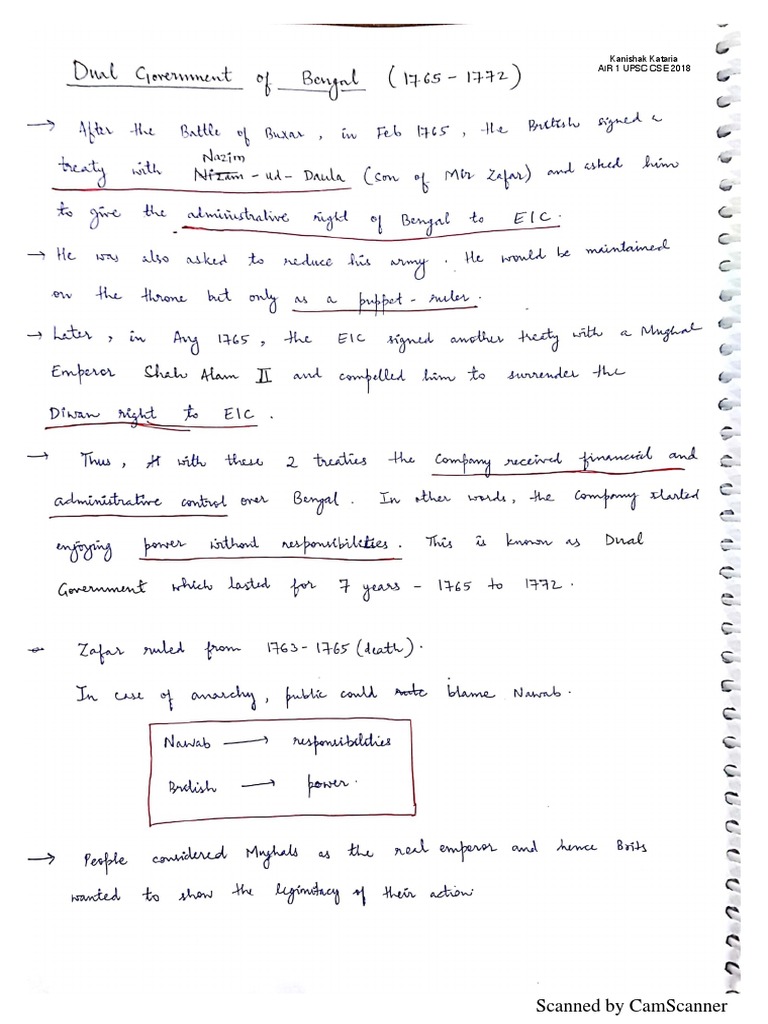 Kanishak Kataria
AIR 1 UPSC CSE 2018
Dual Government of Bengal (1765 - 1772)
→ After the Battle of Buxar, in Feb 1765, the British signed a
Nazim
treaty with Nizam - ud - Daula (son of Mir Zafar) and asked him
to give the administrative right of Bengal to EIC.
→ He was also asked to reduce his army. He would be maintained
on the throne but only as a puppet - ruler.
→ Later, in Aug 1765, the EIC signed another treaty with a Mughal
Emperor Shah Alam II and compelled him to surrender the
Diwan right to EIC.
→ Thus, with these 2 treaties the Company received financial and
administrative control over Bengal. In other words, the Company started
enjoying power without responsibilities. This is known as Dual
Government which lasted for 7 years - 1765 to 1772.
→ Zafar ruled from 1763 - 1765 (death).
In case of anarchy, public could blame Nawab.
Nawab → responsibilities
British → power.
→ People considered Mughals as the real emperor and hence Brits
wanted to show the legimitacy of their action
Scanned by CamScanner